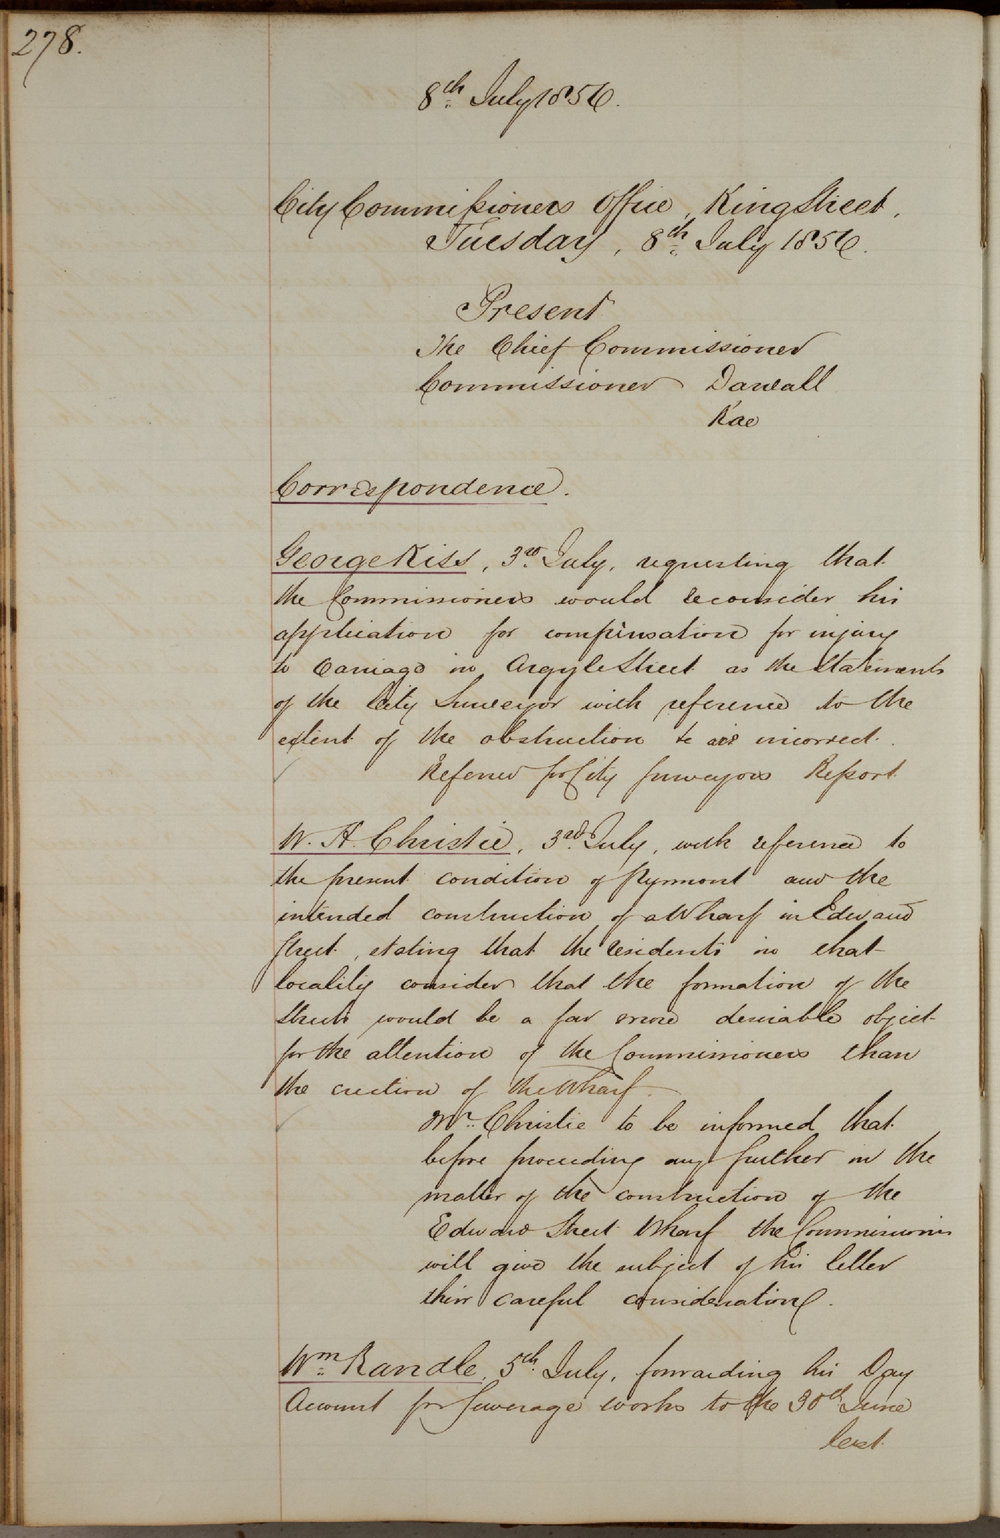 278.
8th July 1856.
City Commissioners Office, King Street,
Tuesday, 8th July 1856.
Present
The Chief Commissioner
Commissioner Darvall
Rae
Correspondence.
George Kiss, 3rd July, requesting that
the Commissioners would reconsider his
application for compensation for injury
to Carriage in Argyle Street as the Statements
of the City Surveyor with reference to the
extent of the obstruction &c are incorrect.
Referred for City Surveyors Report
W. H. Christie, 3rd July, with reference to
the present condition of Pyrmont and the
intended construction of a Wharf in Edward
Street, stating that the residents in that
locality consider that the formation of the
Streets would be a far more desirable object
for the attention of the Commissioners than
the erection of the Wharf.
Mr. Christie to be informed that
before proceeding any further in the
matter of the construction of the
Edward Street Wharf the Commissioners
will give the subject of his letter
their careful consideration.
Wm. Randle, 5th July, forwarding his Day
Account for Sewerage works to the 30th June
last